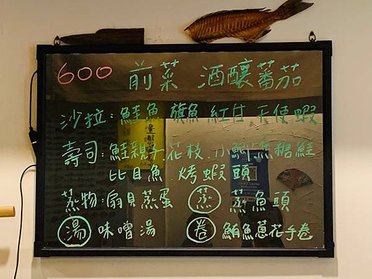 600 前菜 酒釀蕃茄
沙拉: 鮭魚 旗魚 紅甘 天使蝦
壽司: 鮭親子 花枝 小鯛 焦糖鮭
比目魚 烤蝦頭
蒸物: 扇貝蒸蛋 蒸 蒸魚頭
湯 味噌湯 卷 鮪魚蔥花手卷